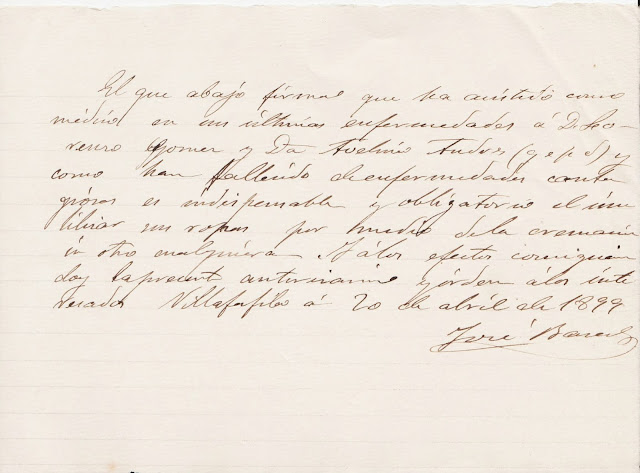 El que abajo firma que ha asistido como
médico en sus últimas enfermedades á Dn Lo-
renzo Gomez y Da Avelina Andres (q e p d) y
como han fallecido de enfermedades conta
giosas es indispensable y obligatorio el inu
tilizar sus ropas por medio de la cremación
ú otro cualquiera. Y á los efectos consiguien
doy la present y órden á los inte
resados Villafafila á 20 de abril de 1899
José